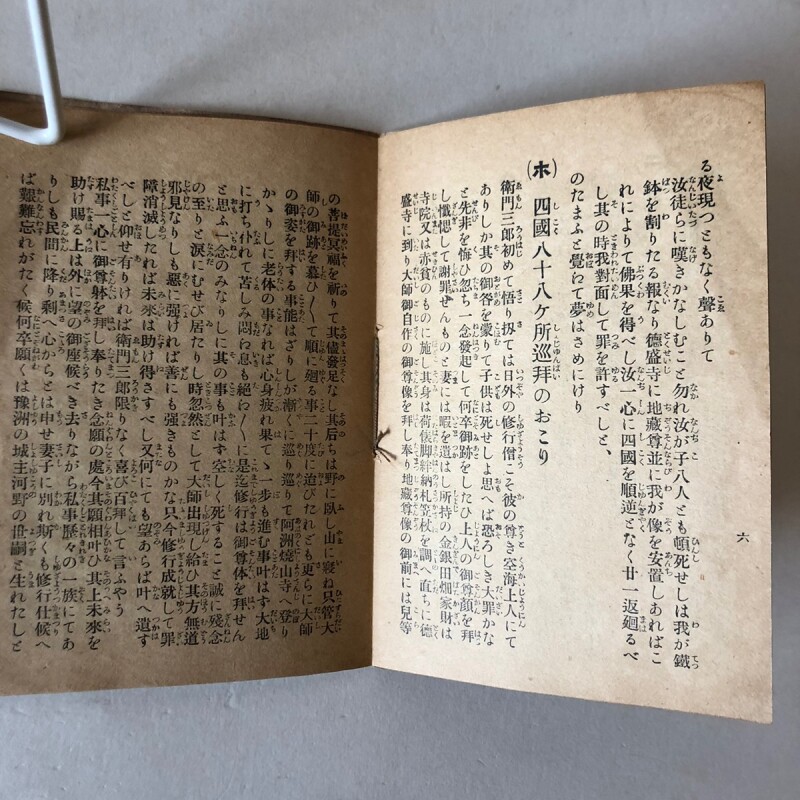 る夜現つともなく聲ありて
汝徒らに嘆きかなしむこと勿れ汝が子八人とも頓死せしは我が鐵
鉢を割りたる報なり德盛寺に地藏尊並に我が像を安置しあればこ
れによりて佛果を得べし汝一心に四國を順逆となく廿一返廻るべ
し其の時我對面して罪を許すべしと、
のたまふと覺めて夢はさめにけり
(ホ) 四國八十八ケ所巡拜のおこり
衛門三郎初めて悟り扨ては日外の修行僧こそ彼の尊き空海上人にて
ありしか其の御咎を蒙りて子供は死せしよ思へば恐ろしき大罪かな
と先非を悔ひ忽ち一念發起して何卒御跡をしたひ上人の御尊顔を拜
し懺悔して謝罪せんものと妻には暇を遣はし所持の金銀田畑家財は
寺院又は赤貧のものに施し其身は荷俵脚絆納札笠杖を調へ直ちに德
盛寺に到り大師御自作の御尊像を拜し奉り地藏尊像の御前には兒等
六
の菩提冥福を祈りて其儘發足なし其后ちは野に臥し山に寢ね只管大
師の御跡を慕ひ〱て順に廻る事二十度に迨びたれども更らに大師
の御姿を拜する事能はざりしが漸くに巡り巡りて阿洲燒山寺へ登り
かゝりしに老体の事なれば心身疲れ果てゝ一步も進む事叶はず大地
に打ち仆れて苦しみ悶ね息も絕ね〲に是迄修行は御尊体を拜せん
と思ふ一念のみなりしに其の事も叶はず空しく死すること誠に殘念
の至りと淚にむせび居たりし時忽然として大師出現し給ひ其方無道
邪見なりしも惡に强ければ善にも强きものかな只今修行成就して罪
障消滅したれば未來は助け得さすべし又何にても望あらば叶へ遣す
べしと仰せ有りければ衛門三郎限りなく喜び百拜して言ふやう
私事一心に御尊躬を拜し奉りたき念願の處今其願相叶ひ其上未來を
助け賜る上は外に望の御座候べき去りながら私事歷々の一族にてあ
りしも民間に降り剩へ心からとは申せ妻子に別れ斯くも修行仕候へ
ば艱難忘れがたく候何卒願くは豫洲の城主河野の世嗣と生れたしと